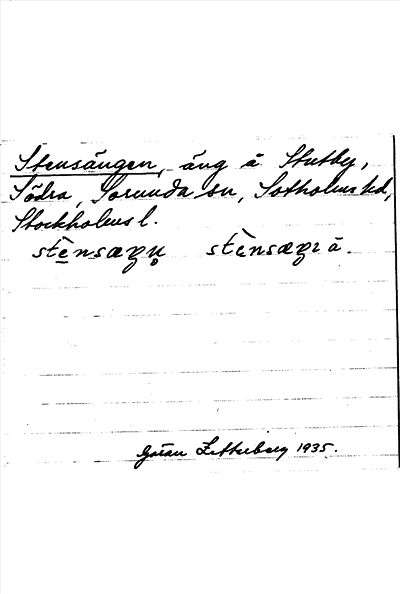 Stensängen, äng å Stutby,
Södra, Sorunda sn, Sotholms hd,
Stockholms l.
stènsæŋn̥ stènsæŋı å.
Göran Zetterberg 1935.